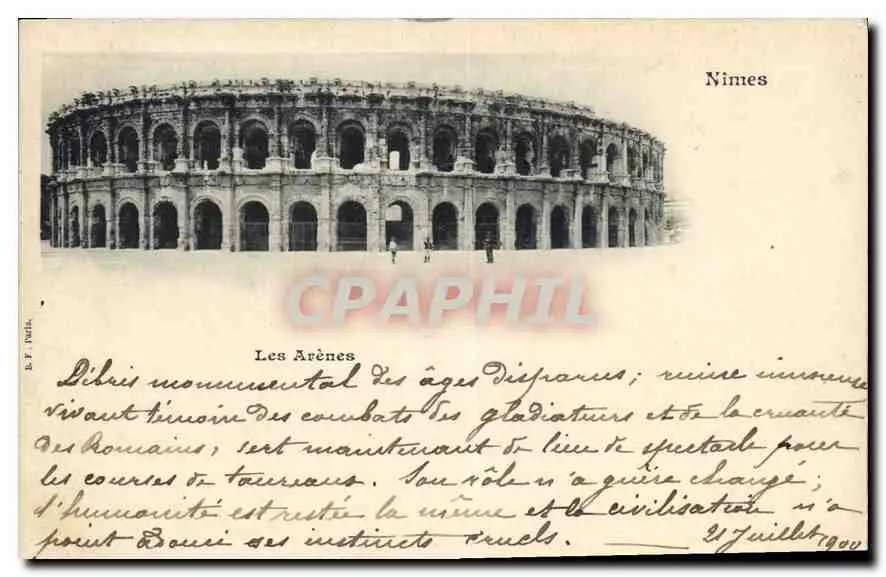 Nîmes
CPAPHIL
B. F., Paris.
Les Arènes
Débris monumental des âges disparus ; ruine immense
vivant témoin des combats des gladiateurs et de la cruauté
des Romains, sert maintenant de lieu de spectacle pour
les courses de taureaux. Son rôle n'a guère changé ;
l'humanité est restée la même et la civilisation n'a
point adouci ses instincts cruels. — 21 Juillet 1900